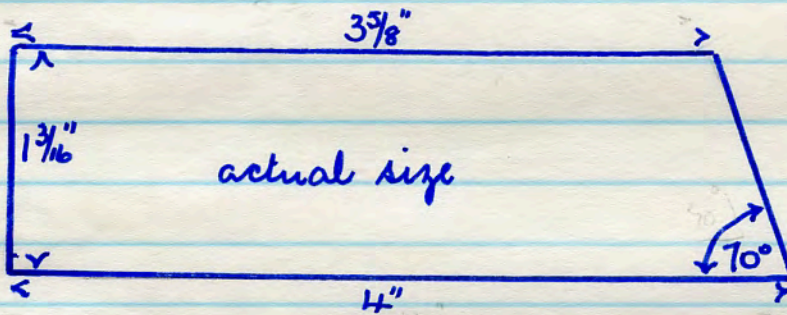 3 5/8"
1 3/16"
actual size
70°
4"